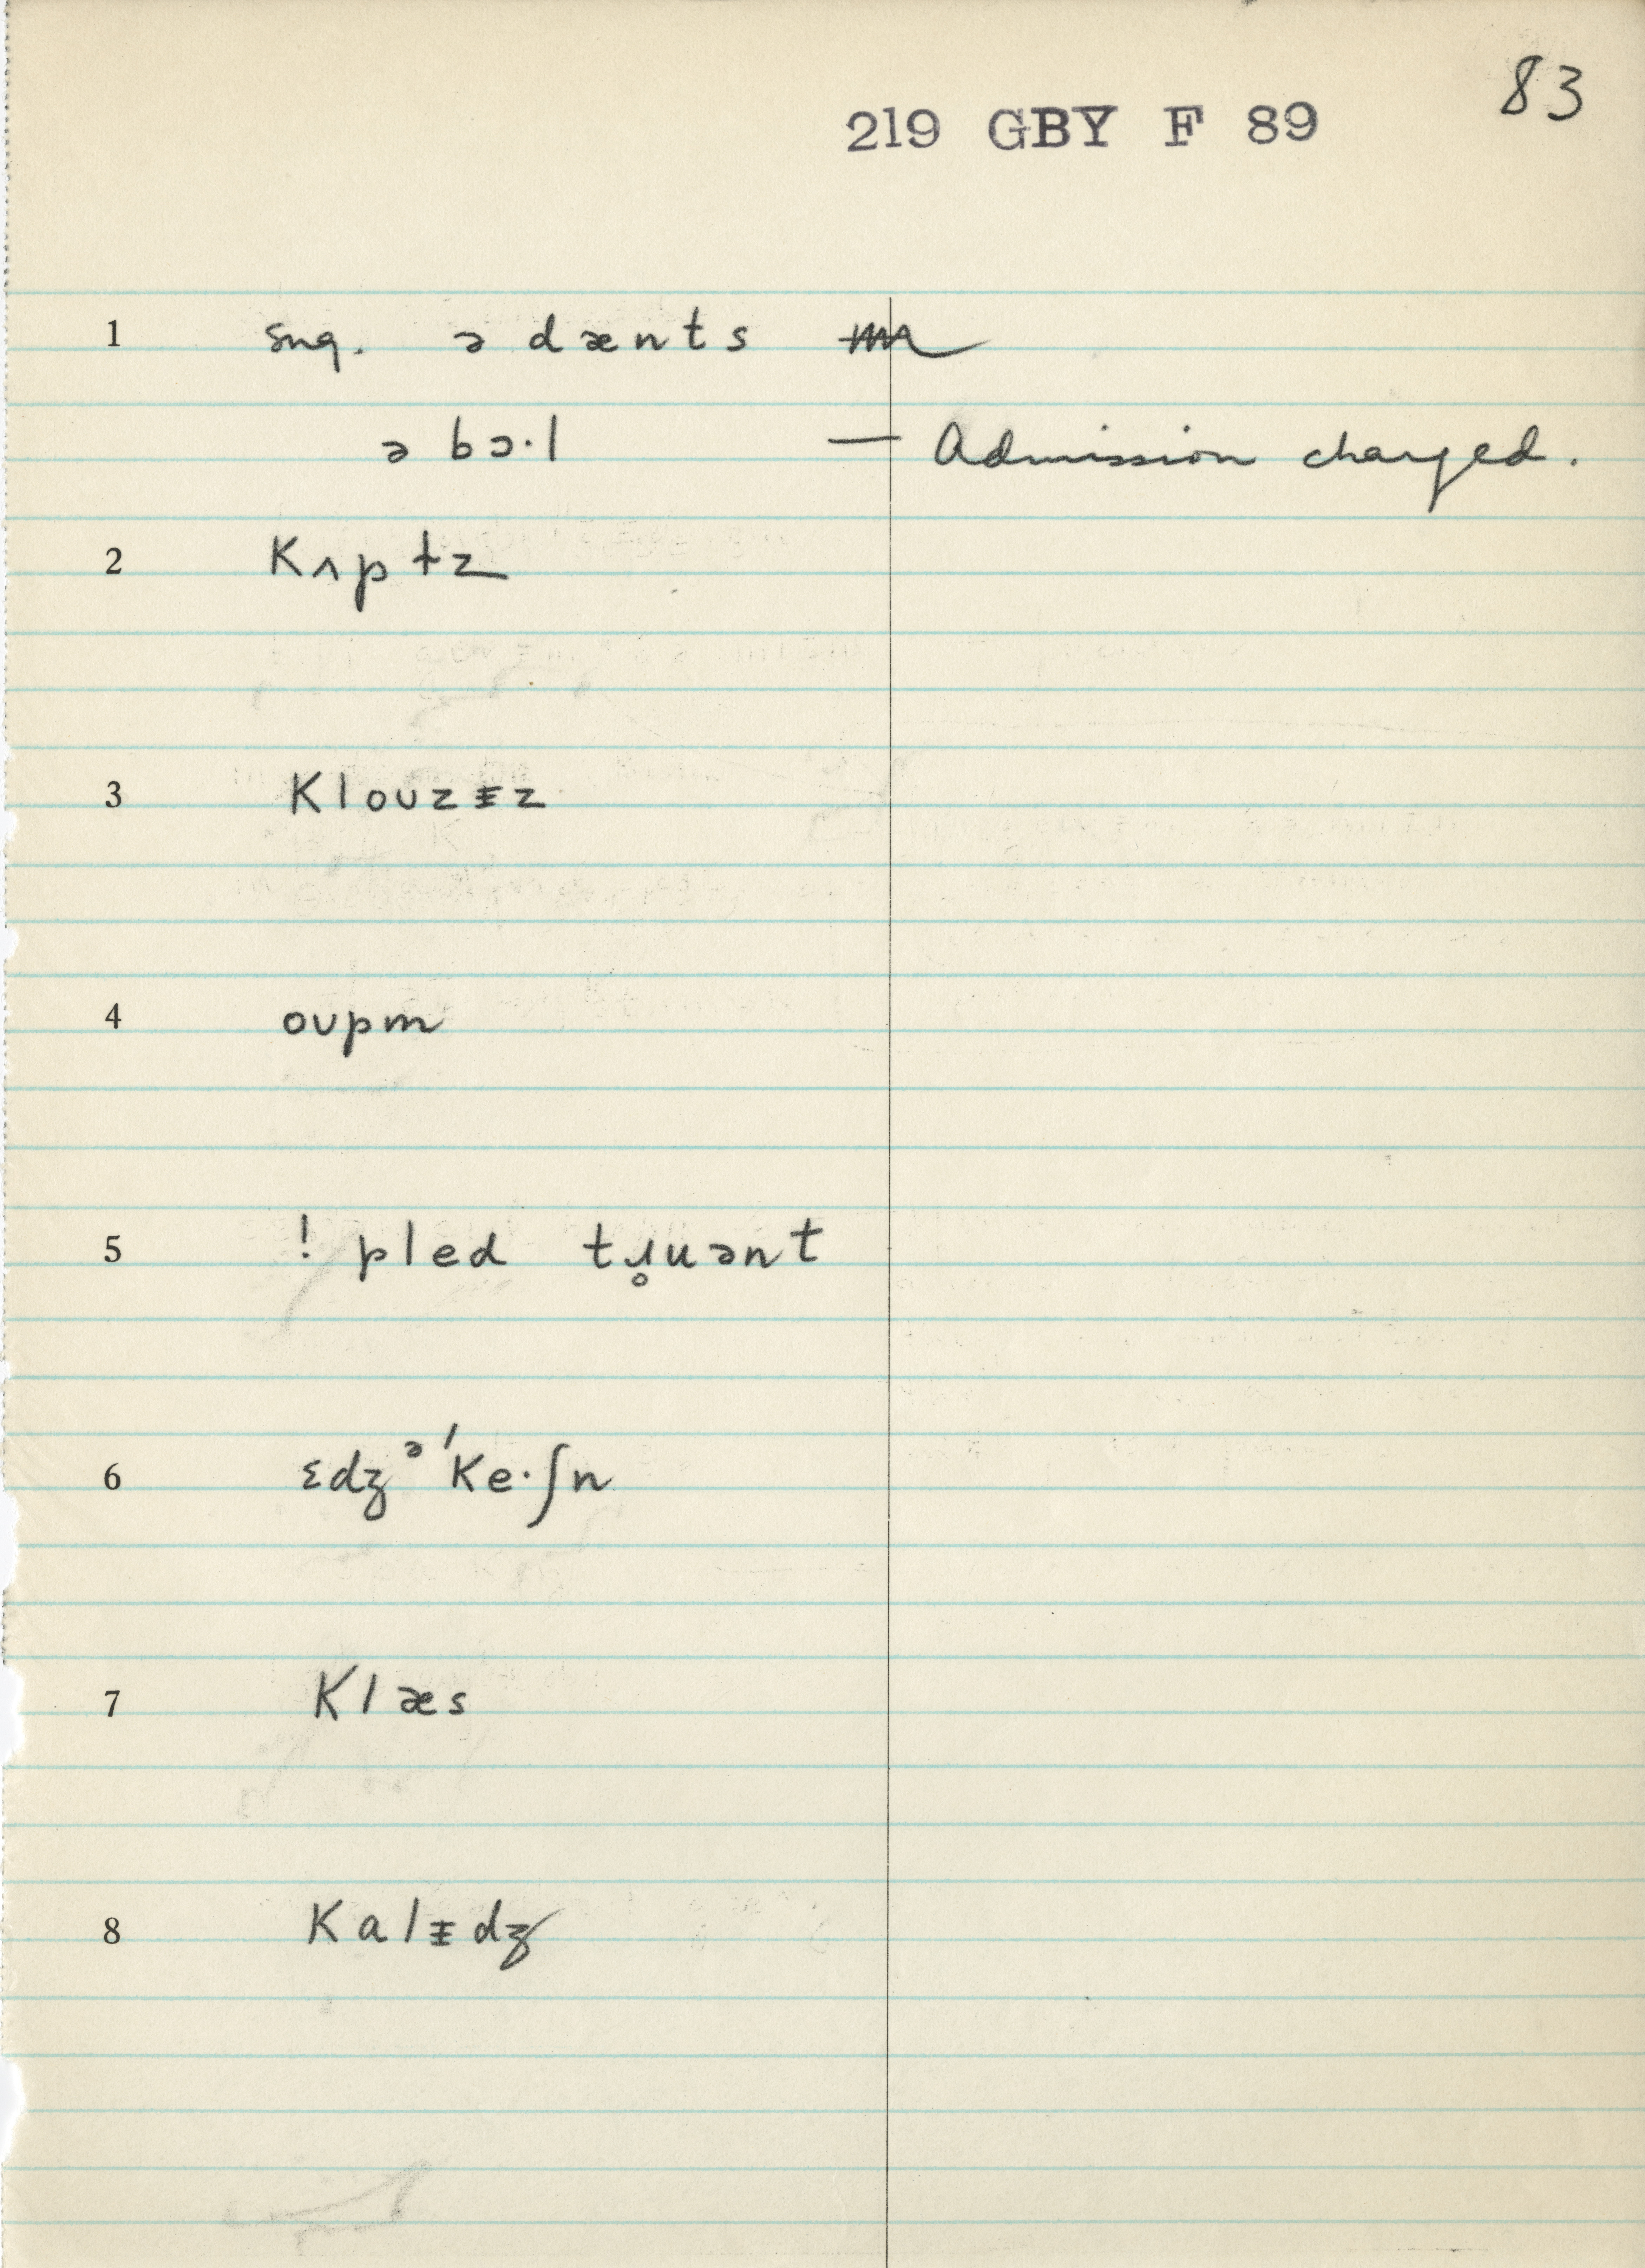 83
219 GBY F 89
1 sug. ə dænts
ə bɔ·l — Admission charged.
2 kʌptz
3 klouzɪz
4 oʊpm
5 ! pled tɹ̥uənt
6 ɛdʒᵊ'ke·ʃn
7 klæs
8 kalɪdʒ